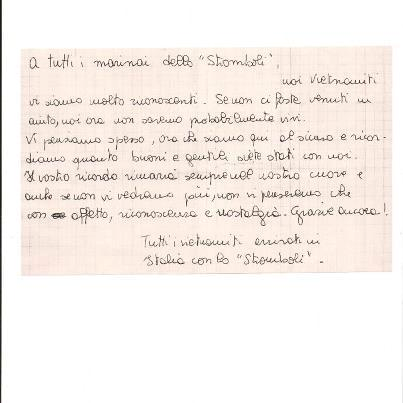 A tutti i marinai dello "Stromboli",
noi vietnamiti
vi siamo molto riconoscenti. Se non ci foste venuti in
aiuto, noi ora non saremo probabilmente vivi.
Vi pensiamo spesso, ora che siamo qui al sicuro e ricor-
diamo quanto buoni e gentili siete stati con noi.
Il vostro ricordo rimarrà sempre nel nostro cuore e
anche se non vi vedremo più, non vi penseremo che
con affetto, riconoscenza e nostalgia. Grazie ancora!
Tutti i vietnamiti arrivati in
Italia con lo "Stromboli".